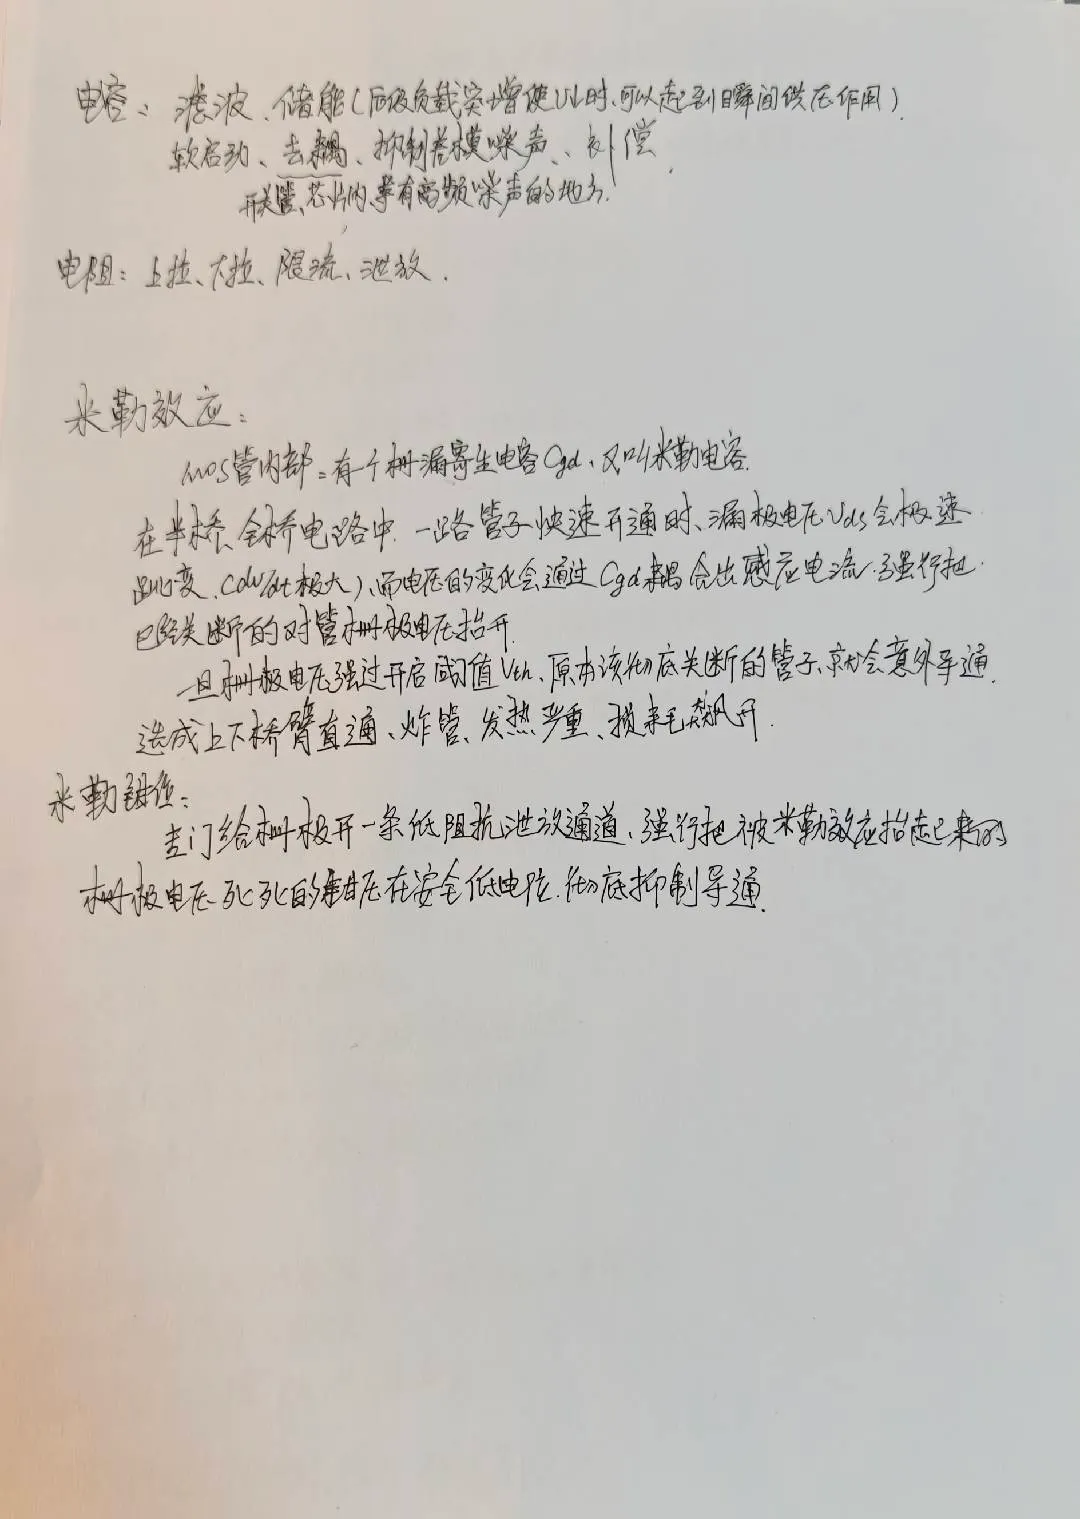 电容：滤波、储能（后级负载突增使U↓时、可以起到瞬间供压作用）
软启动、去耦、抑制差模噪声、补偿
开关管、芯片内、等有高频噪声的地方.
电阻：上拉、下拉、限流、泄放.
米勒效应：
MOS管内部：有一个栅漏寄生电容Cgd、又叫米勒电容.
在半桥、全桥电路中.一路管子快速开通时、漏极电压Vds会极速
跳变.(dv/dt极大)、而电压的变化会通过Cgd耦合出感应电流.强行把
已经关断的对管栅极电压抬升.
一旦栅极电压强过开启阈值Vth、原本该彻底关断的管子、就会意外导通.
造成上下桥臂直通、炸管、发热严重、损耗飙升.
米勒钳位：
专门给栅极开一条低阻抗泄放通道、强行把被米勒效应抬起来的
栅极电压死死的钳压在安全低电位.彻底抑制导通.